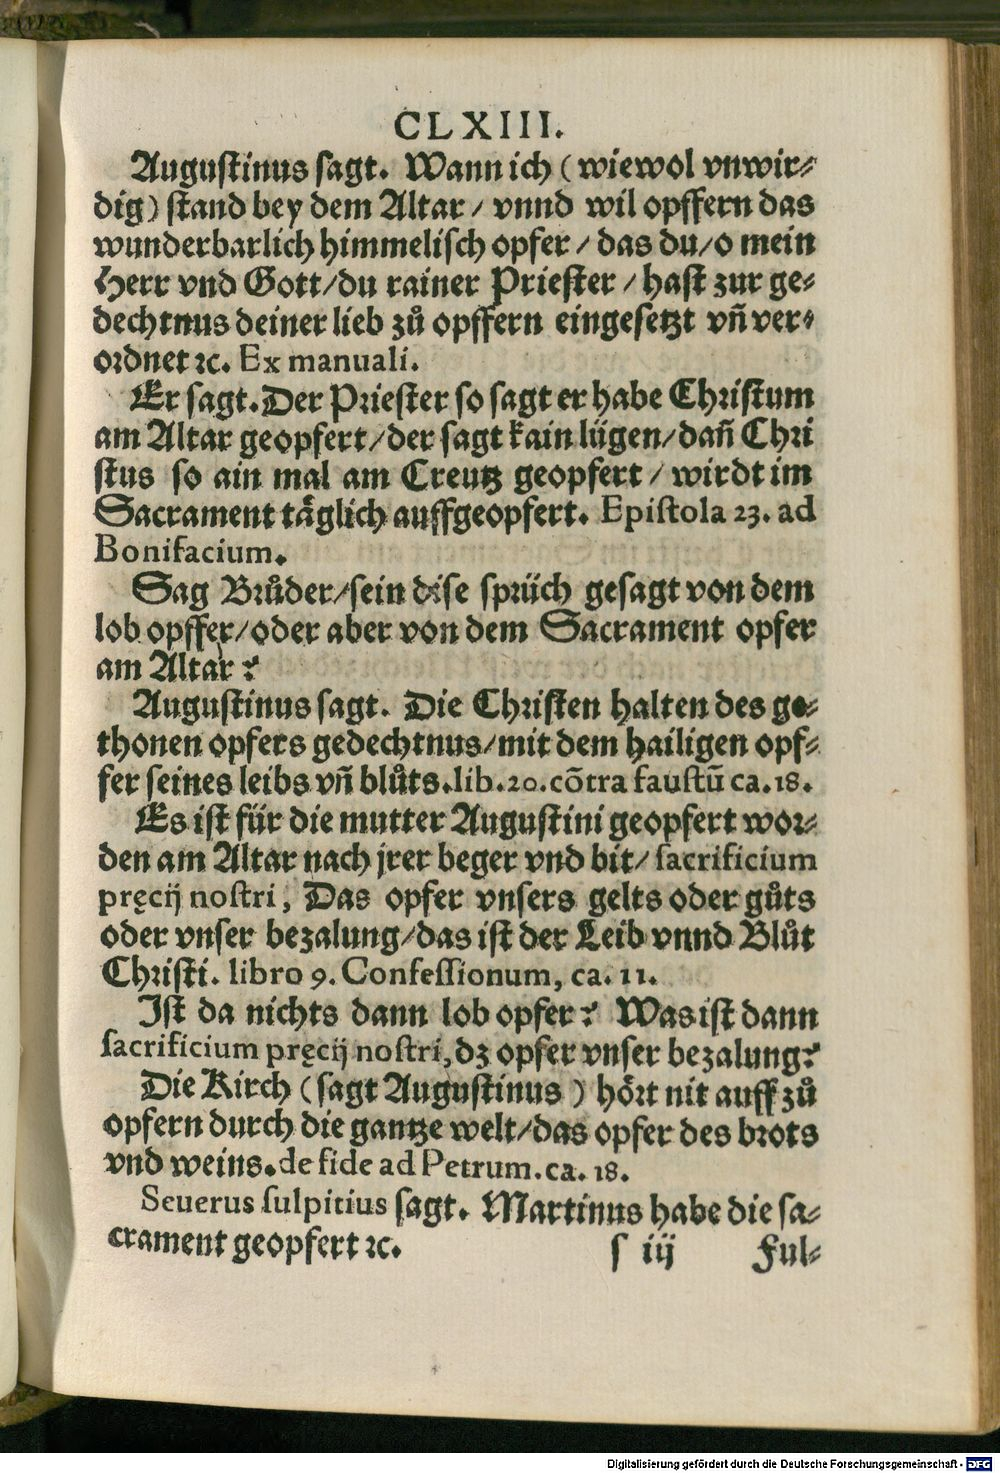 CLXIII.
Augustinus sagt. Wann ich (wiewol vnwir-
dig) stand bey dem Altar / vnnd wil opffern das
wunderbarlich himmelisch opfer / das du/o mein
Herr vnd Gott/du rainer Priester / hast zur ge-
dechtnus deiner lieb zů opffern eingesetzt vñ ver-
ordnet ꝛc. Ex manuali.
Er sagt. Der Priester so sagt er habe Christum
am Altar geopfert/der sagt kain lügen/dañ Chri
stus so ain mal am Creutz geopfert / wirdt im
Sacrament täglich auffgeopfert. Epistola 23. ad
Bonifacium.
Sag Brůder/sein dise sprüch gesagt von dem
lob opffer/oder aber von dem Sacrament opfer
am Altar?
Augustinus sagt. Die Christen halten des ge-
thonen opfers gedechtnus/mit dem hailigen opf-
fer seines leibs vñ blůts. lib. 20. cõtra faustũ ca. 18.
Es ist für die mutter Augustini geopfert wor-
den am Altar nach jrer beger vnd bit/ sacrificium
pręcij nostri, Das opfer vnsers gelts oder gůts
oder vnser bezalung/das ist der Leib vnnd Blůt
Christi. libro 9. Confessionum, ca. 11.
Ist da nichts dann lob opfer? Was ist dann
sacrificium pręcij nostri, dz opfer vnser bezalung?
Die Kirch (sagt Augustinus) hört nit auff zů
opfern durch die gantze welt/das opfer des brots
vnd weins. de fide ad Petrum. ca. 18.
Seuerus sulpitius sagt. Martinus habe die sa-
crament geopfert ꝛc.
s iij Ful-
Digitalisierung gefördert durch die Deutsche Forschungsgemeinschaft - DFG